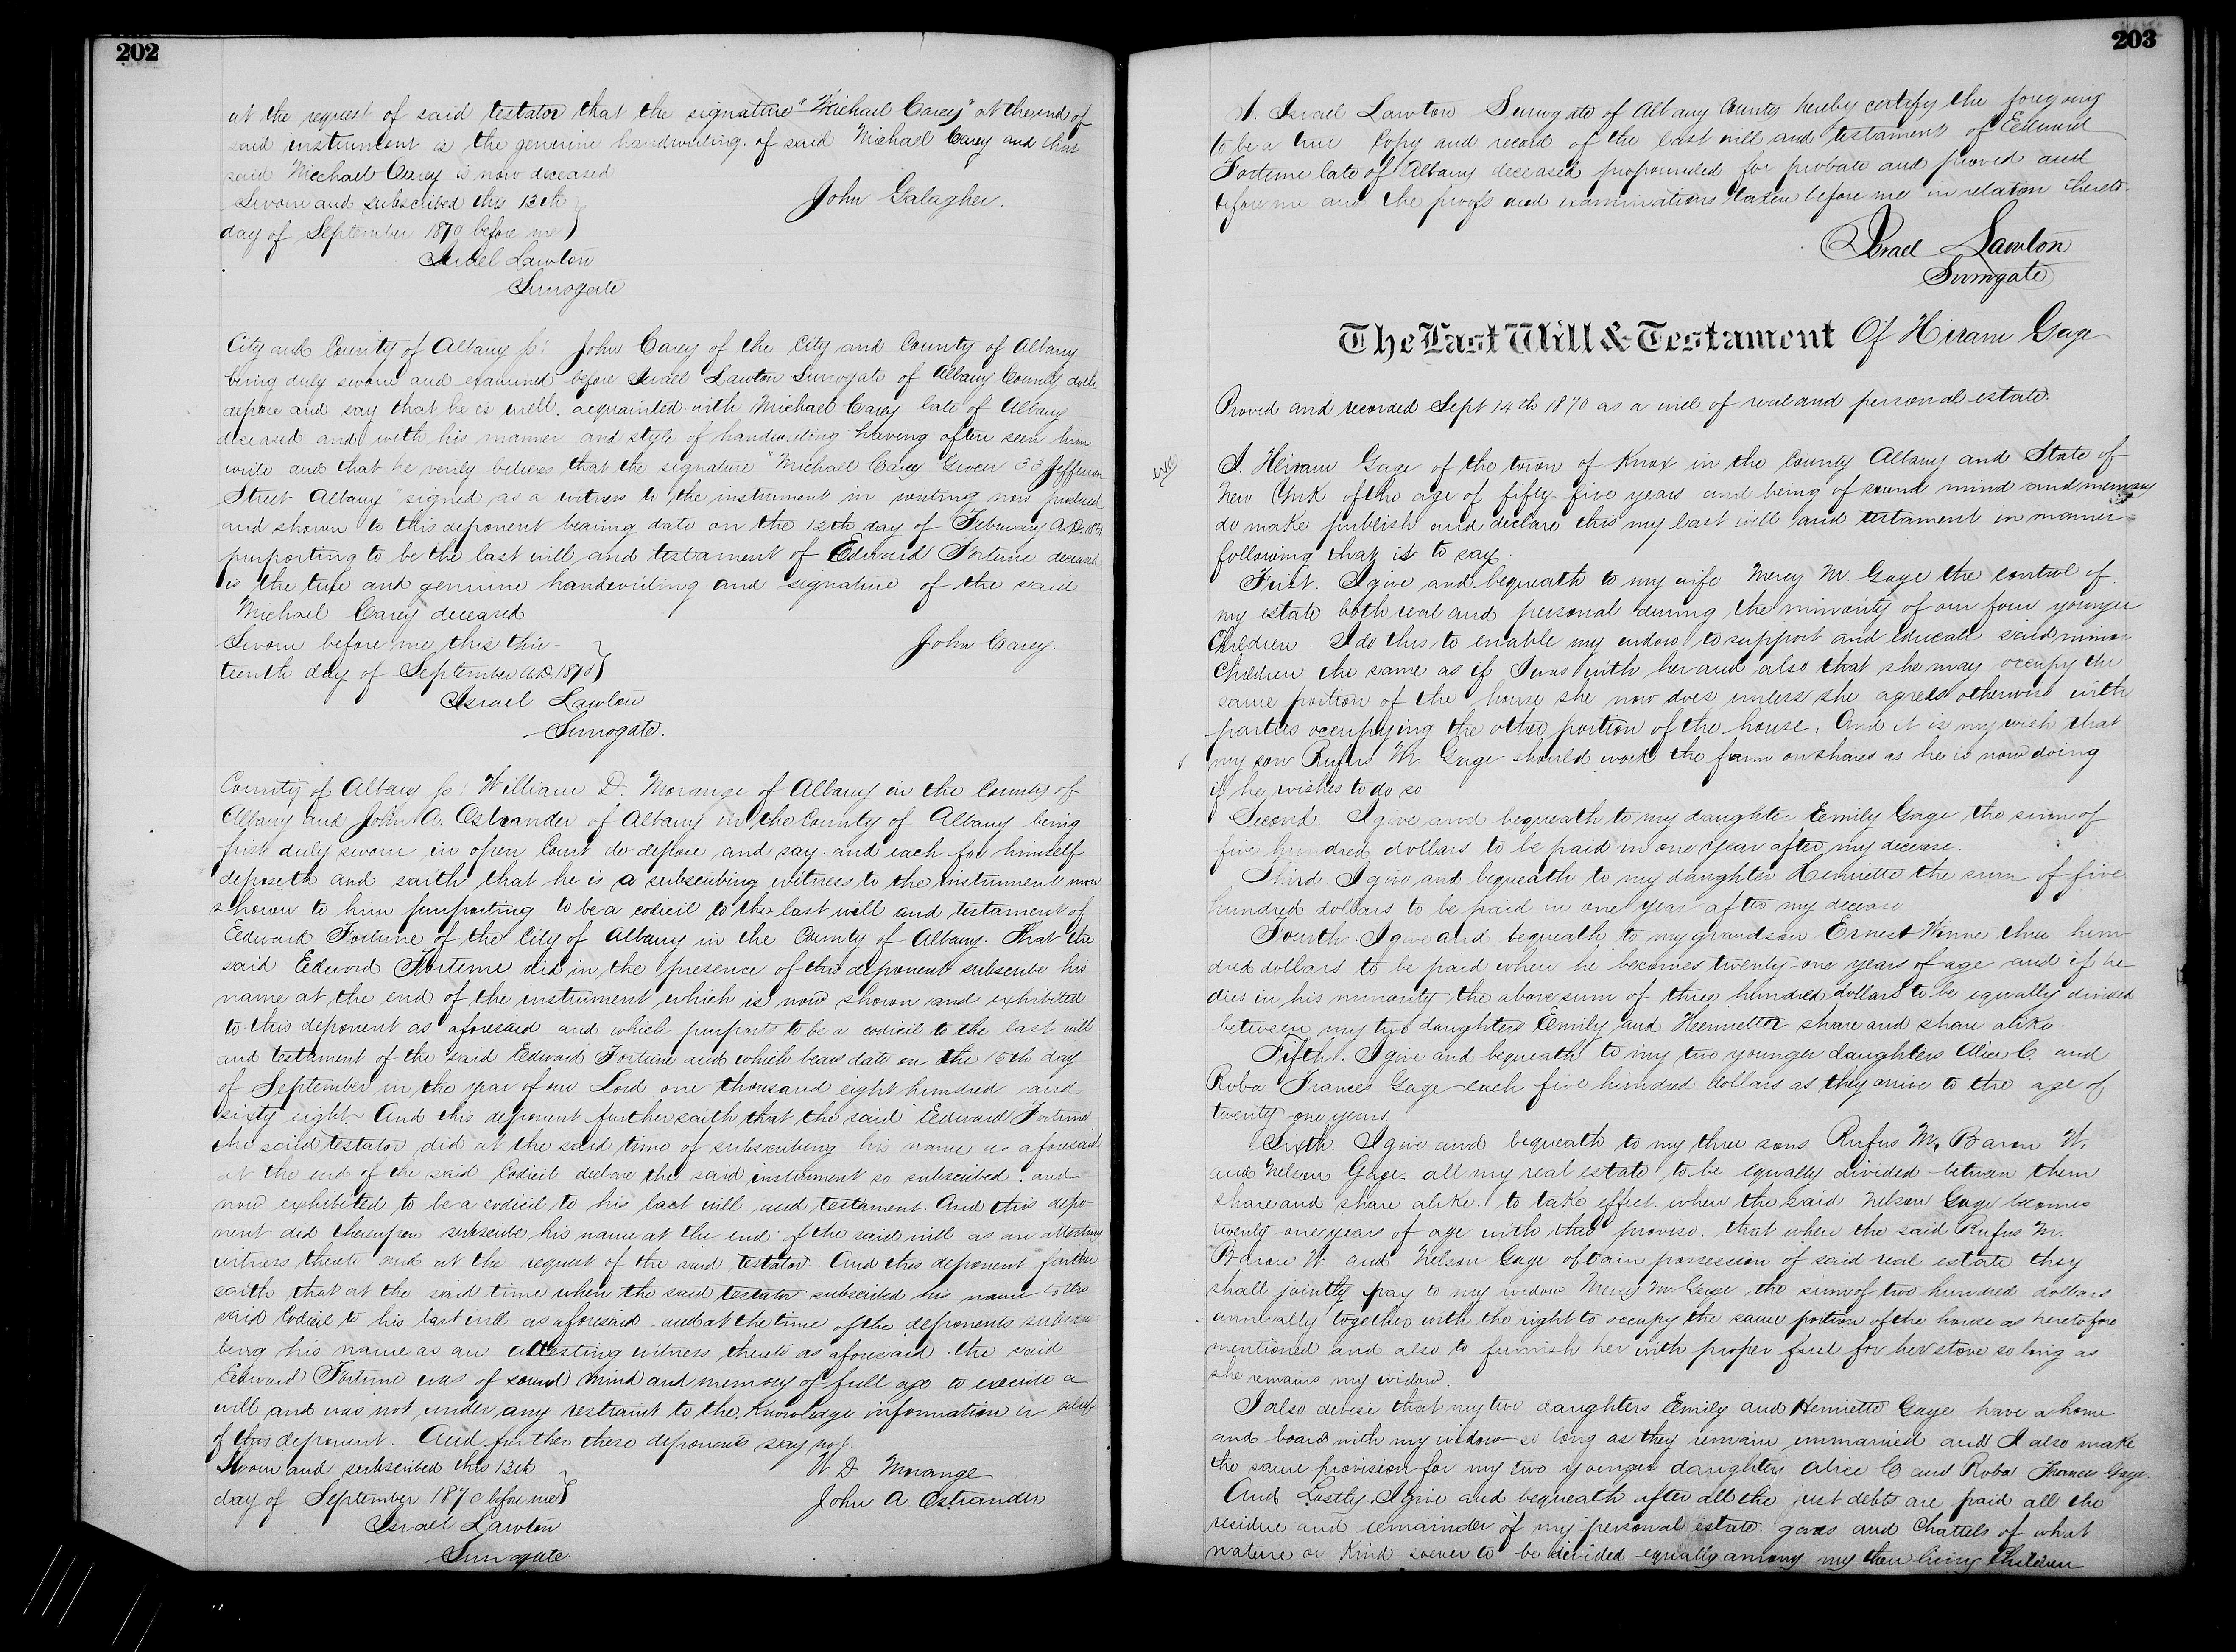 202
at the request of said testator that the signature "Michael Carey" at the end of
said instrument is the genuine handwriting of said Michael Carey and that
said Michael Carey is now deceased
Sworn and subscribed this 13th
day of September 1870 before me
John Galagher.
Israel Lawton
Surrogate
City and County of Albany ss: John Carey of the City and County of Albany
being duly sworn and examined before Israel Lawton Surrogate of Albany County doth
depose and say that he is well acquainted with Michael Carey late of Albany
deceased and with his manner and style of handwriting having often seen him
write and that he verily believes that the signature "Michael Carey Green 33 Jefferson
Street Albany" signed as a witness to the instrument in writing now produced
and shown to this deponent bearing date on the 12th day of February A.D.
purporting to be the last will and testament of Edward Fortune deceased
is the true and genuine handwriting and signature of the said
Michael Carey deceased
Sworn before me this thir-
teenth day of September A.D. 1870
John Carey.
Israel Lawton
Surrogate.
County of Albany ss: William D. Morange of Albany in the County of
Albany and John A. Ostrander of Albany in the County of Albany being
first duly sworn in open Court do depose and say and each for himself
deposeth and saith that he is a subscribing witness to the instrument now
shown to him purporting to be a codicil to the last will and testament of
Edward Fortune of the City of Albany in the County of Albany. That the
said Edward Fortune did in the presence of this deponent subscribe his
name at the end of the instrument which is now shown and exhibited
to this deponent as aforesaid and which purports to be a codicil to the last will
and testament of the said Edward Fortune and which bears date on the 15th day
of September in the year of our Lord one thousand eight hundred and
sixty eight. And this deponent further saith that the said Edward Fortune
the said testator did at the said time of subscribing his name as aforesaid
at the end of the said Codicil declare the said instrument so subscribed and
now exhibited to be a codicil to his last will and testament. And this depo-
nent did thereupon subscribe his name at the end of the said will as an attesting
witness thereto and at the request of the said testator. And this deponent further
saith that at the said time when the said testator subscribed his name to the
said Codicil to his last will as aforesaid and at the time of the deponents subscri-
bing his name as an attesting witness thereto as aforesaid the said
Edward Fortune was of sound mind and memory of full age to execute a
will and was not under any restraint to the knowledge information or belief
of this deponent. And further these deponents say not.
Sworn and subscribed this 13th
day of September 1870 before me
W D Morange
John A Ostrander
Israel Lawton
Surrogate
203
I. Israel Lawton Surrogate of Albany County hereby certify the foregoing
to be a true Copy and record of the last will and testament of Edward
Fortune late of Albany deceased propounded for probate and proved and
before me and the proofs and examinations taken before me in relation thereto
Israel Lawton
Surrogate
The Last Will & Testament Of Hiram Gage
Proved and recorded Sept 14th 1870 as a will of real and personal estate.
I. Hiram Gage of the town of Knox in the County Albany and State of
New York of the age of fifty-five years and being of sound mind and memory
do make publish and declare this my last will and testament in manner
following that is to say.
First. I give and bequeath to my wife Mercy M. Gage the control of
my estate both real and personal during the minority of our four younger
Children. I do this to enable my widow to support and educate said minor
Children the same as if I was with her and also that she may occupy the
same portion of the house she now does unless she agrees otherwise with
parties occupying the other portion of the house. And it is my wish that
my son Rufus M. Gage should work the farm on shares as he is now doing
if he wishes to do so
Second. I give and bequeath to my daughter Emily Gage the sum of
five hundred dollars to be paid in one year after my decease.
Third. I give and bequeath to my daughter Henrietta the sum of five
hundred dollars to be paid in one year after my decease
Fourth. I give and bequeath to my grandson Ernest Winne three hun-
dred dollars to be paid when he becomes twenty-one years of age and if he
dies in his minority the above sum of three hundred dollars to be equally divided
between my two daughters Emily and Henrietta share and share alike.
Fifth. I give and bequeath to my two younger daughters Alice C. and
Roba Frances Gage each five hundred dollars as they arrive to the age of
twenty one years
Sixth. I give and bequeath to my three sons Rufus M, Baron W.
and Nelson Gage all my real estate to be equally divided between them
share and share alike. to take effect when the said Nelson Gage becomes
twenty one years of age with this proviso. that when the said Rufus M.
Baron W. and Nelson Gage obtain possession of said real estate they
shall jointly pay to my widow Mercy M. Gage the sum of two hundred dollars
annually together with the right to occupy the same portion of the house as heretofore
mentioned and also to furnish her with proper fuel for her stove so long as
she remains my widow.
I also devise that my two daughters Emily and Henrietta Gage have a home
and board with my widow so long as they remain unmarried and I also make
the same provision for my two younger daughters Alice C and Roba Frances Gage.
And Lastly. I give and bequeath after all the just debts are paid all the
residue and remainder of my personal estate goods and Chattels of what
nature or kind soever to be divided equally among my then living Children